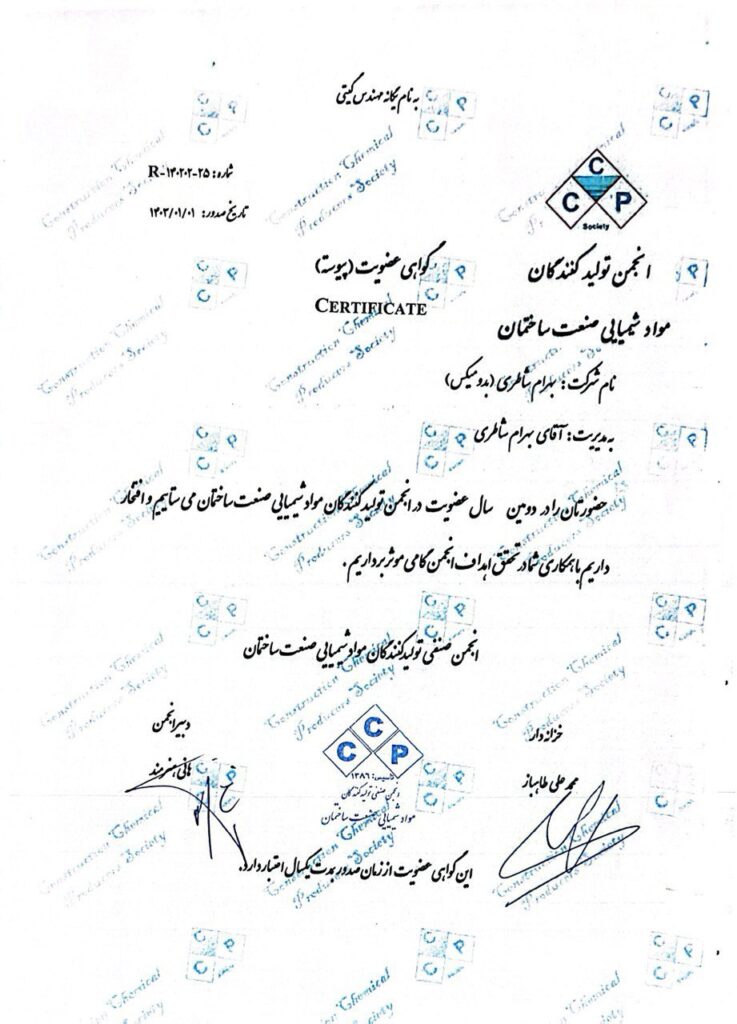 به نام یگانه مهندس گیتی
شماره: R-۱۴۰۲۰۲-۲۵
تاریخ صدور: ۱۴۰۳/۰۱/۰۱
C
C P
Society
انجمن تولید کنندگان
مواد شیمیایی صنعت ساختمان
گواهی عضویت (پیوسته)
CERTIFICATE
نام شرکت: بهرام شاطری (بدومیکس)
به مدیریت: آقای بهرام شاطری
حضورتان را در دومین سال عضویت در انجمن تولید کنندگان مواد شیمیایی صنعت ساختمان می ستاییم و افتخار
داریم با همکاری شما در تحقق اهداف انجمن گامی موثر برداریم.
انجمن صنفی تولید کنندگان مواد شیمیایی صنعت ساختمان
خزانه دار
محمد علی طاهباز
دبیر انجمن
هانی هنرمند
C
C P
تاسیس: ۱۳۸۶
انجمن صنفی تولید کنندگان
مواد شیمیایی صنعت ساختمان
این گواهی عضویت از زمان صدور بمدت یکسال اعتبار دارد.
Construction Chemical
Producers Society